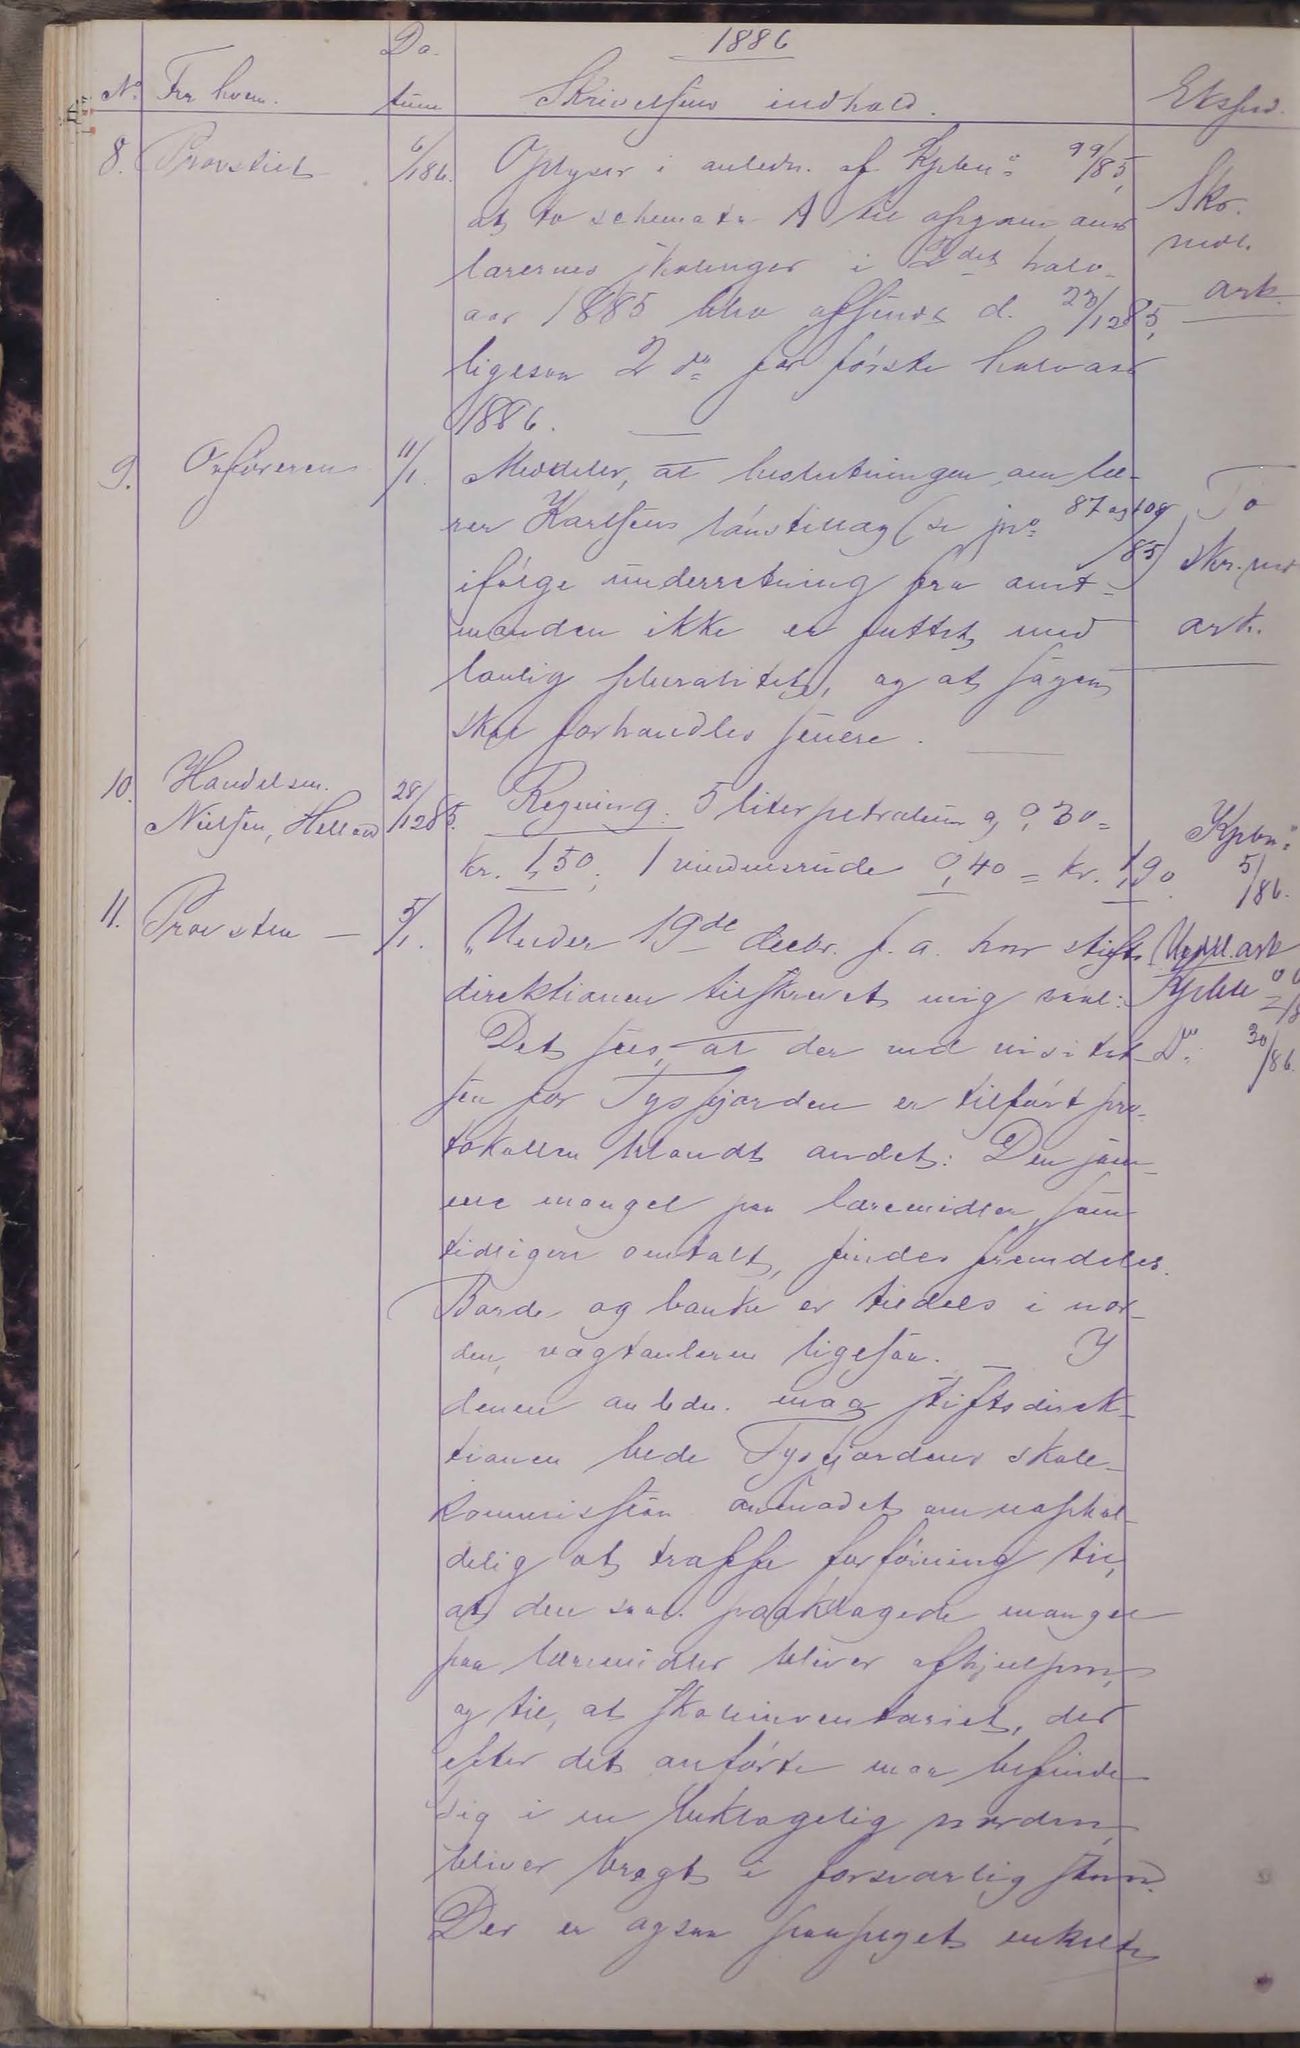 1886
No. Fra hvem. Datum Skrivelsens indhold. Eksped.
8. Provstiet 6/1 86. Oplyser i anledn. af Kpbno 99/85,
at to schemata A til opgave over
lærernes skolinger i 2det halv-
aar 1885 blev afsendt d. 23/12 85,
ligesaa 2 do for første halvaar
1886.
Skr.
medl.
ark.
9. Ordføreren 11/1. Meddeler, at beslutningen om læ-
rer Karlsens lønstillæg (se jno 87 og 108/85)
ifølge underretning fra amt-
manden ikke er fattet med
lovlig pluralitet, og at sagen
skal forhandles senere.
To
skr. ved
ark.
10. Handelsm.
Nielsen, Helland 28/12 85. Regning. 5 liter petroleum a 0,30 =
kr. 1,50; 1 vinduesrude 0,40 = kr. 1,90.
Kpbno
5/86.
11. Provsten — 5/1. "Under 19de decbr. f. a. har stifts-
direktionen tilskrevet mig saal.:
Det sees, at der ved visitat-
sen for Tysfjorden er tilført pro-
tokollen blandt andet: Den jam-
mangel paa læremidler, som
tidligere omtalt, findes fremdeles.
Borde og bænke er tildels i uor-
den, vægtavlerne ligesaa. — I
denne anledn. maa stiftsdirek-
tionen bede Tysfjordens skole-
kommission anmodet om uophol-
delig at træffe forføining til,
at den saal. paaklagede mangel
paa læremidler bliver afhjulpen,
og til, at skoleinventariet, der
efter det anførte maa befinde
sig i en beklagelig uorden,
bliver bragt i forsvarlig stand.
Der er ogsaa paapeget enkelte
ark
Kpbno
Do. 30/86.